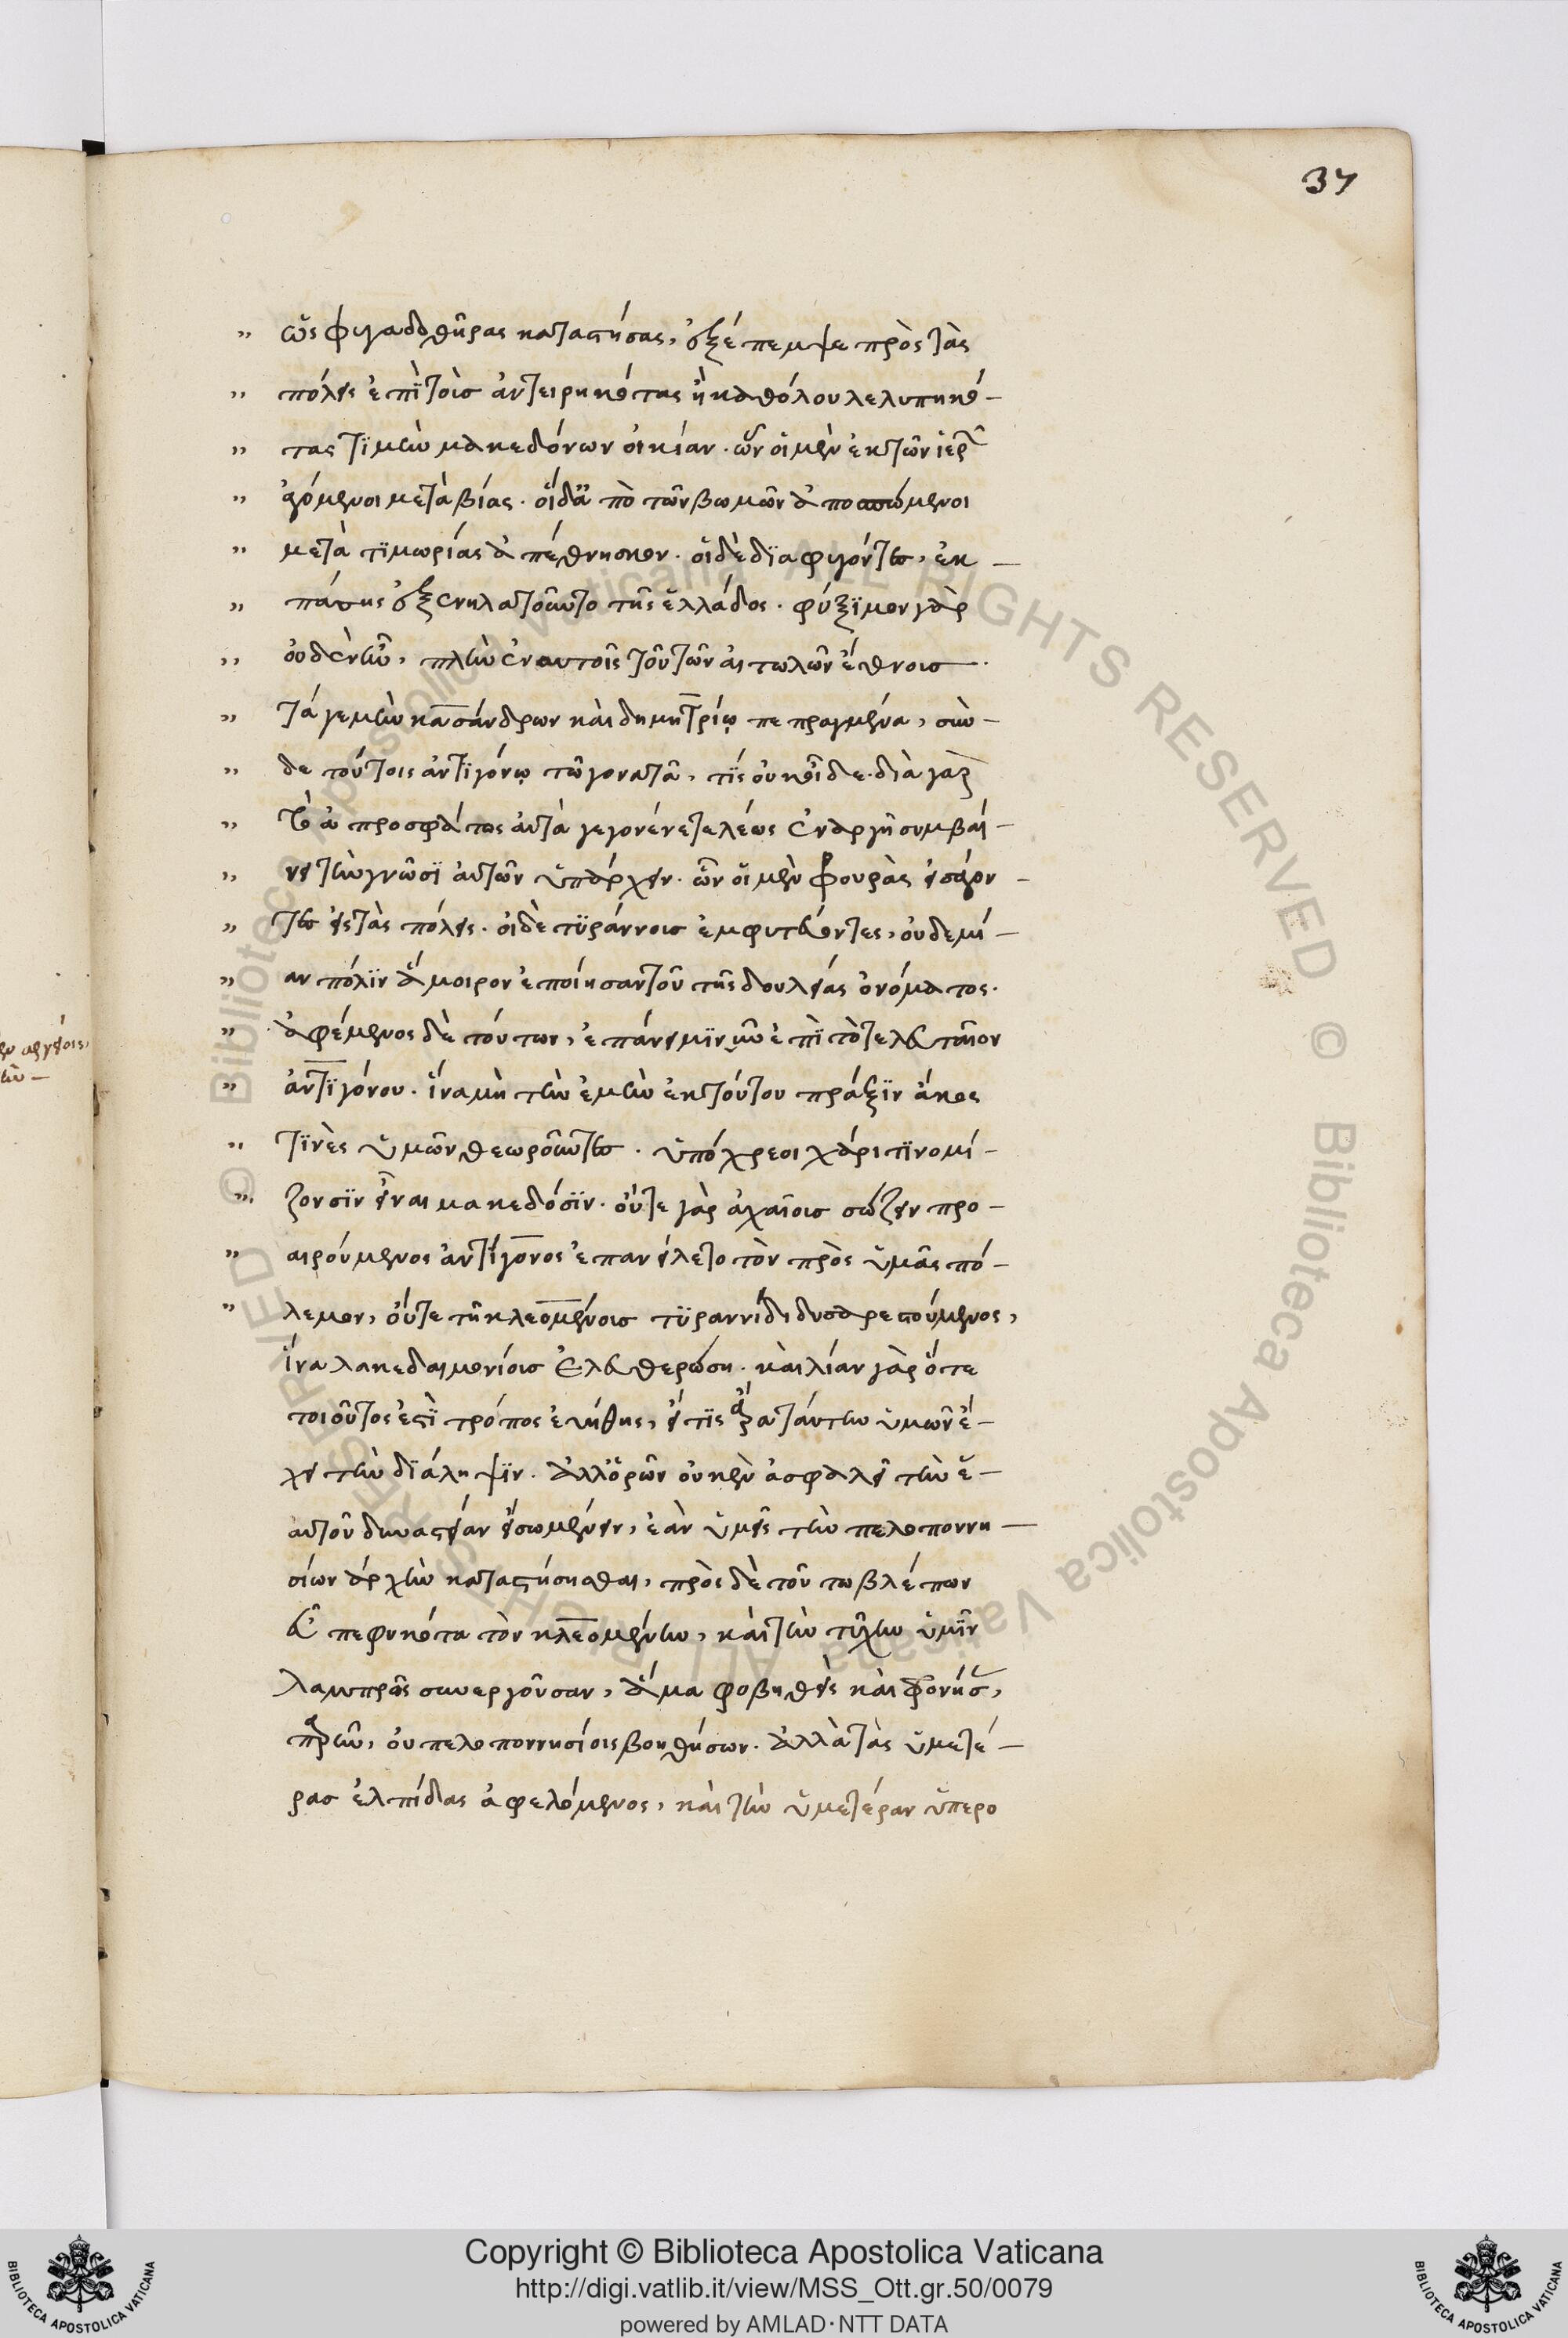 37
ὃς φυγαδοθήρας καταστήσας, ἐξέπεμψε πρὸς τὰς
πόλεις ἐπὶ τοὺς ἀντειρηκότας ἢ καθόλου λελυπηκό-
τας τὴν μακεδόνων οἰκίαν. ὧν οἱ μὲν ἐκ τῶν ἱερῶν
ἀγόμενοι μετὰ βίας. οἱ δ' ἀπὸ τῶν βωμῶν ἀποσπώμενοι
μετὰ τιμωρίας ἀπέθνησκον. οἱ δὲ διαφυγόντες, ἐκ
πάσης ἐξενηλατοῦντο τῆς ἑλλάδος. φύξιμον γὰρ
οὐδὲν ἦν, πλὴν ἐν αυτοῖς τοῦ τῶν αἰτωλῶν ἔθνους.
τά γε μὴν κασάνδρων καὶ δημητρίῳ πεπραγμένα, σὺν
δὲ τούτοις ἀντιγόνῳ τῶ γονατᾶ, τίς οὐκ οἶδε. διὰ γὰρ
τὸ προσφάτως ἀυτὰ γεγονέναι τελέως ἐναργῆ συμβαί-
νει τὴν γνῶσιν αὐτῶν ὑπάρχειν. ὧν οἱ μὲν φρουρὰς εἰσάγον-
τες εἰς τὰς πόλεις. οἱ δὲ τυράννους ἐμφυτεύοντες, οὐδεμί-
αν πόλιν ἄμοιρον ἐποίησαν τοῦ τῆς δουλείας ὀνόματος.
ἀφέμενος δὲ τούτων, ἐπάνειμι νῦν ἐπὶ τὸ τελευταῖον
ἀντίγονου. ἵνα μὴ τὴν ἐμὴν ἐκ τούτου πρᾶξιν ἀκος
τινὲς ὑμῶν θεωροῦντες. ὑπόχρεοι χάριτι νομί-
ζουσιν εἶναι μακεδόσιν. οὔτε γὰρ ἀχαίους σώζειν προ-
αιρούμενος ἀντίγονος ἐπανείλετο τὸν πρὸς ὑμᾶς πό-
λεμον, οὔτε τῆ κλεομένους τυραννίδι δυσαρεστούμενος,
ἵνα λακεδαιμονίους ἐλευθερώση. καὶ λίαν γὰρ ὅτε
τοιοῦτος ἐστὶ τρόπος εὐήθης, εἴ τις ἄρα ταύτην ὑμῶν ἔ-
χει τὴν διάληψιν. ἀλλ' ὁρῶν οὐκ ἐν ἀσφαλεῖ τὴν ἑ-
αυτοῦ δυναστείαν ἐσωμένην, ἐὰν ὑμεῖς τὴν πελοποννη-
σίων ἀρχὴν καταστήσησθαι, πρὸς δὲ τοῦτω βλέπων
εὖ πεφυκότα τὸν κλεομένην, καὶ τὴν τύχην ὑμῖν
λαμπρῶς συνεργοῦσαν, ἅμα φοβηθεὶς καὶ φθονήσας,
παρῆν, οὐ πελοποννησίοις βοηθήσων. ἀλλὰ τὰς ὑμετέ-
ρας ἐλπίδας ἀφελόμενος, καὶ τὴν ὑμετέραν ὑπερο
Copyright © Biblioteca Apostolica Vaticana
http://digi.vatlib.it/view/MSS_Ott.gr.50/0079
powered by AMLAD·NTT DATA